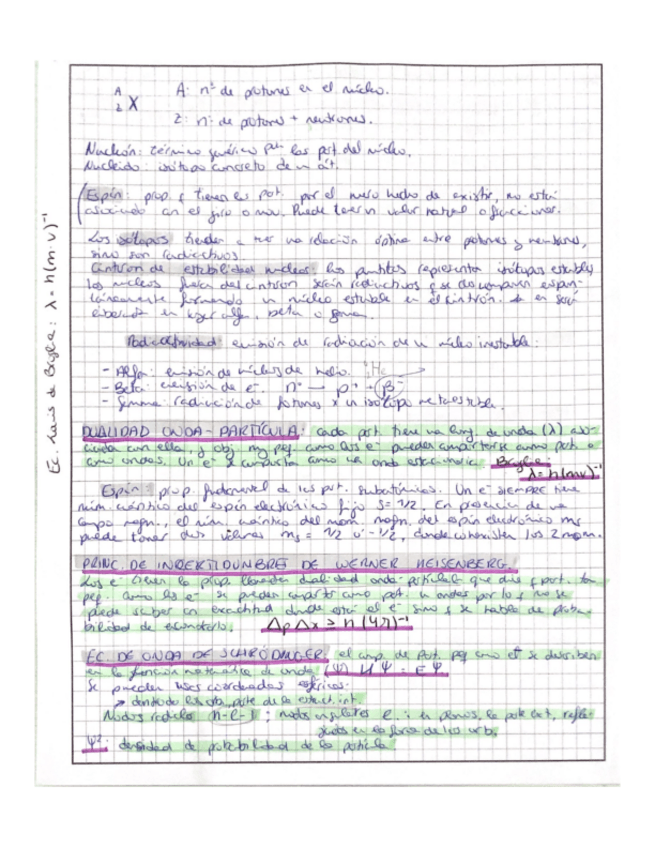 A
Z X
A: nº de protones en el núcleo.
Z: nº de protones + neutrones.
Nucleón: término genérico para las part. del núcleo.
Nucleido: isótopo concreto de un át.
Espín: prop. q tienen las part. por el mero hecho de existir, no está
asociado con el giro o mov. Puede tener un valor natural o fraccionar.
Los isótopos tienden a tener una relación óptima entre protones y neutrones,
sino son radioactivos.
Cinturon de estabilidad nuclear: los puntitos representa isótopos estables
los núcleos fuera del cinturon serán radioactivos y se descomponen espon-
táneamente formando un núcleo estable en el cinturón.
en rayos alfa, beta o gamma.
Radioactividad: emisión de radiación de un núcleo inestable:
- Alfa: emisión de núcleos de helio. He
- Beta: emisión de e-. n° → p+ + β-
- Gamma: radiación de fotones x un isótopo metaestable.
Ec. Louis de Broglie: λ = h(m·v)⁻¹
DUALIDAD ONDA-PARTÍCULA: cada part. tiene una long. de onda (λ) aso-
ciada con ella, y obj. muy peq. como los e- pueden comportarse como part. o
como ondas. Un e- se comporta como una onda estacionaria. Broglie:
λ = h(mv)⁻¹
Espín: prop. fundamental de las part. subatómicas. Un e- SIEMPRE tiene
núm. cuántico del espín electrónico fijo S = 1/2. En presencia de un
campo magn., el núm. cuántico del mom. magn. del espín electrónico ms
puede tomar dos valores ms = 1/2 ó -1/2, donde coexisten los 2 mom.
PRINC. DE INCERTIDUMBRE DE WERNER HEISENBERG.
Los e- tienen la prop. llamada dualidad onda-partícula que dice q part. tan
peq. como los e- se pueden comportar como part. u ondas por lo q no se
puede saber con exactitud donde está el e- sino q se habla de proba-
bilidad de encontrarlo. Δp Δx ≥ h (4π)⁻¹
EC. DE ONDA DE SCHRÖDINGER: el comp. de part. peq como e- se describen
en la función matemática de onda (Ψ) HΨ = EΨ
Se pueden usar coordenadas esféricas:
→ dentro de los orb, parte de la estruct. int.
Nodos radiales n-l-1; nodos angulares l: en planos, la parte ext, refle-
jados en la forma de los orb.
Ψ²: densidad de probabilidad de la partícula